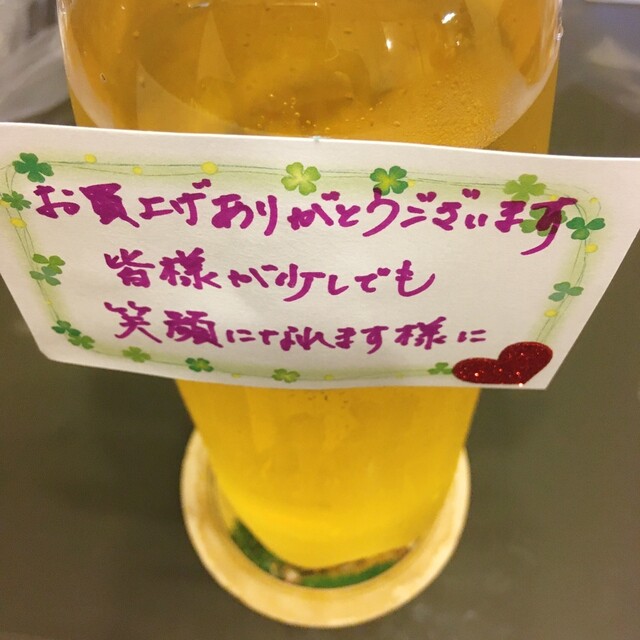 お買上げありがとうございます
皆様が少しでも
笑顔になれます様に